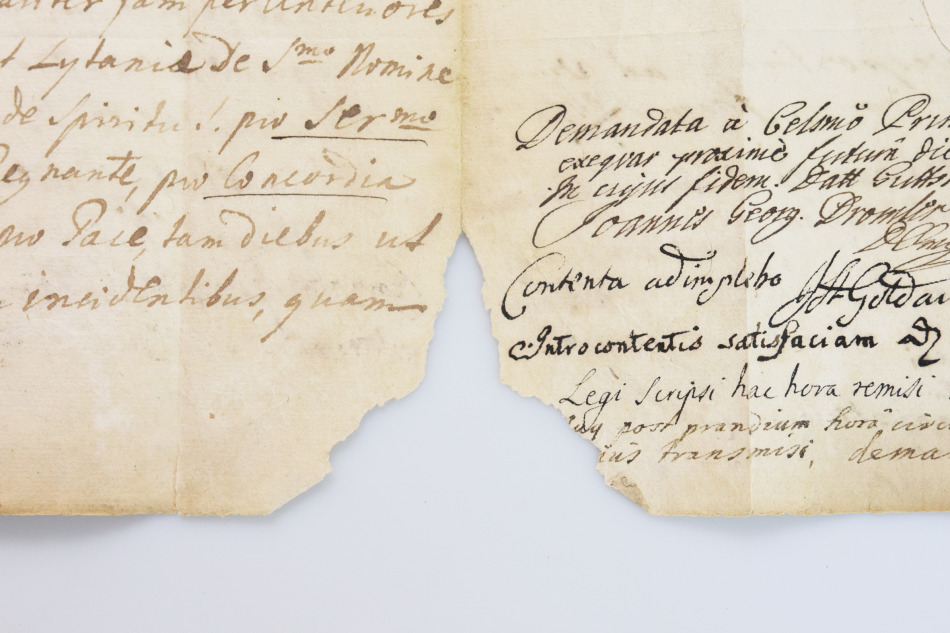 jam pertinuores
Lytaniæ de Smo Nomine
de Spiritu S. pro Sermo
egnante, pro Concordia
Pace, tam diebus ut
incidentibus, quam
Demandata à Celsmo Prin
exequar proximè futurâ die
In cujus fidem. Datt
Joannes Georg. Dromler
Contenta adimplebo
Introcontentis satisfaciam
Legi scripsi hac hora remisi
post prandium horâ circi
transmisi, dema